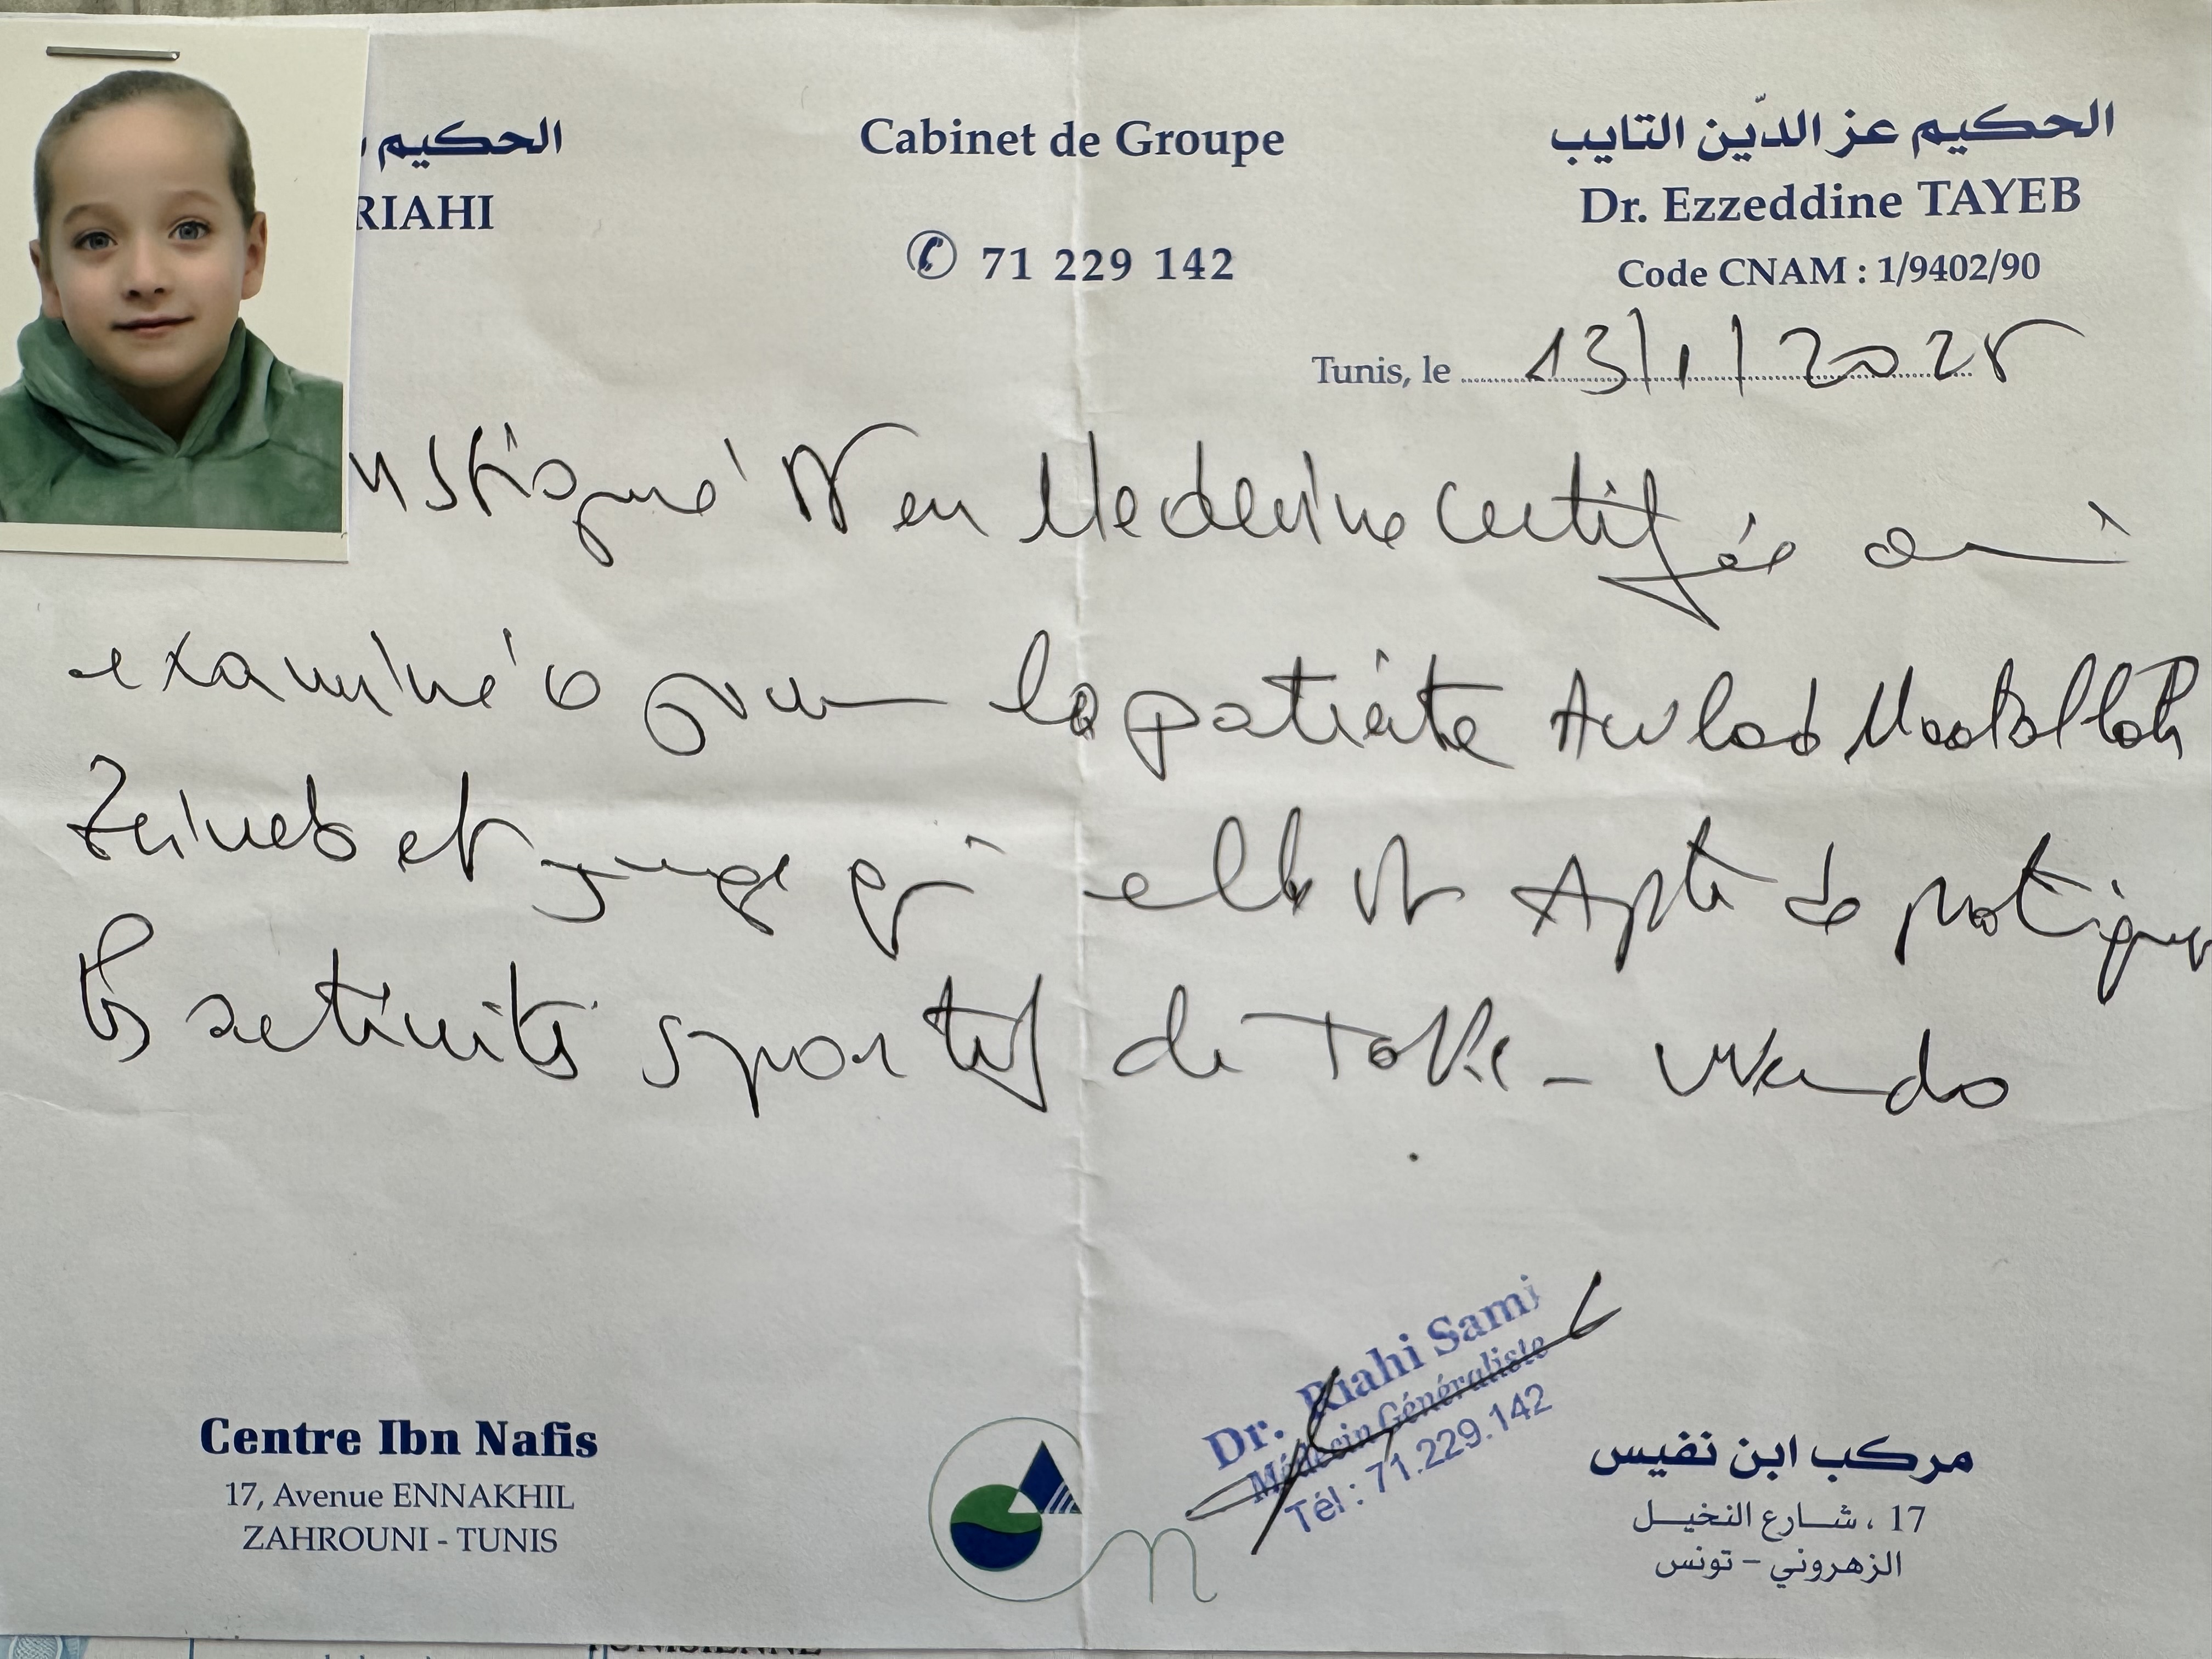 الحكيم
RIAHI
Cabinet de Groupe
71 229 142
الحكيم عز الدّين التايب
Dr. Ezzeddine TAYEB
Code CNAM : 1/9402/90
Tunis, le 13/1/2025
en Medecine certifie
examiné la patiente Awlad
Zeineb et juge qu'elle est Apte de pratiquer
les activités sportif de Take-wendo
Dr. Riahi Sami
Médecin Généraliste
Tél : 71.229.142
Centre Ibn Nafis
17, Avenue ENNAKHIL
ZAHROUNI - TUNIS
مركب ابن نفيس
17 ، شارع النخيل
الزهروني - تونس